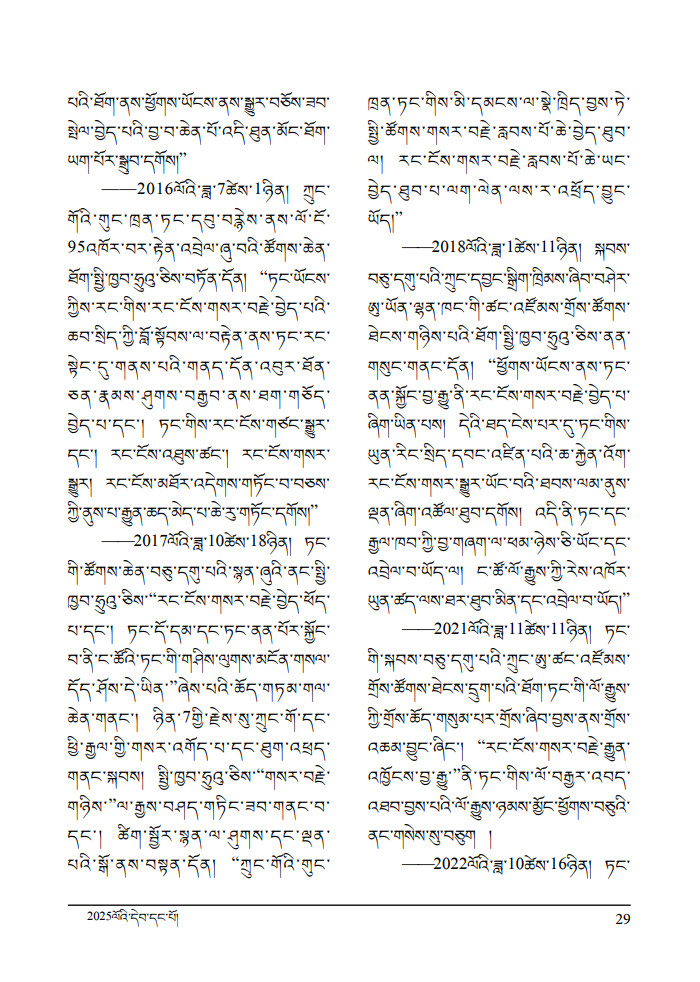 པའི་ཐོག་ནས་ཕྱོགས་ཡོངས་ནས་སྒྱུར་བཅོས་ཟབ་
སྤེལ་བྱེད་པའི་བྱ་བ་ཆེན་པོ་འདི་ཐུན་མོང་ཐོག་
ཡག་པོར་སྒྲུབ་དགོས།”
——2016ལོའི་ཟླ་7ཚེས་1ཉིན། ཀྲུང་
གོའི་གུང་ཁྲན་ཏང་དབུ་བརྙེས་ནས་ལོ་ངོ་
95འཁོར་བར་རྟེན་འབྲེལ་ཞུ་བའི་ཚོགས་ཆེན་
ཐོག་སྤྱི་ཁྱབ་ཧྲུའུ་ཅིས་བཏོན་དོན། “ཏང་ཡོངས་
ཀྱིས་རང་གིས་རང་ངོས་གསར་བརྗེ་བྱེད་པའི་
ཆབ་སྲིད་ཀྱི་བློ་སྟོབས་ལ་བརྟེན་ནས་ཏང་རང་
སྟེང་དུ་གནས་པའི་གནད་དོན་འབུར་ཐོན་
ཅན་རྣམས་ཤུགས་བརྒྱབ་ནས་ཐག་གཅོད་
བྱེད་པ་དང་། ཏང་གིས་རང་ངོས་གཙང་སྒྱུར་
དང་། རང་ངོས་འཐུས་ཚང་། རང་ངོས་གསར་
སྒྱུར། རང་ངོས་མཐོར་འདེགས་གཏོང་བ་བཅས་
ཀྱི་ནུས་པ་རྒྱུན་ཆད་མེད་པ་ཆེ་རུ་གཏོང་དགོས།”
——2017ལོའི་ཟླ་10ཚེས་18ཉིན། ཏང་
གི་ཚོགས་ཆེན་བཅུ་དགུ་པའི་སྙན་ཞུའི་ནང་སྤྱི་
ཁྱབ་ཧྲུའུ་ཅིས་“རང་ངོས་གསར་བརྗེ་བྱེད་ཕོད་
པ་དང་། ཏང་དོ་དམ་དང་ཏང་ནན་པོར་སྐྱོང་
བ་ནི་ང་ཚོའི་ཏང་གི་གཤིས་ལུགས་མངོན་གསལ་
དོད་ཤོས་དེ་ཡིན་”ཞེས་པའི་ཆོད་གཏམ་གལ་
ཆེན་གནང་། ཉིན་7གྱི་རྗེས་སུ་ཀྲུང་གོ་དང་
ཕྱི་རྒྱལ་གྱི་གསར་འགོད་པ་དང་ཐུག་འཕྲད་
གནང་སྐབས། སྤྱི་ཁྱབ་ཧྲུའུ་ཅིས་“གསར་བརྗེ་
གཉིས་”ལ་རྒྱས་བཤད་གཏིང་ཟབ་གནང་བ་
དང་། ཚིག་སྦྱོར་སྙན་ལ་ཤུགས་དང་ལྡན་
པའི་སྒོ་ནས་བསྟན་དོན། “ཀྲུང་གོའི་གུང་
ཁྲན་ཏང་གིས་མི་དམངས་ལ་སྣེ་ཁྲིད་བྱས་ཏེ་
སྤྱི་ཚོགས་གསར་བརྗེ་རླབས་པོ་ཆེ་བྱེད་ཐུབ་
ལ། རང་ངོས་གསར་བརྗེ་རླབས་པོ་ཆེ་ཡང་
བྱེད་ཐུབ་པ་ལག་ལེན་ལས་ར་འཕྲོད་བྱུང་
ཡོད།”
——2018ལོའི་ཟླ་1ཚེས་11ཉིན། སྐབས་
བཅུ་དགུ་པའི་ཀྲུང་དབྱང་སྒྲིག་ཁྲིམས་ཞིབ་བཤེར་
ཨུ་ཡོན་ལྷན་ཁང་གི་ཚང་འཛོམས་གྲོས་ཚོགས་
ཐེངས་གཉིས་པའི་ཐོག་སྤྱི་ཁྱབ་ཧྲུའུ་ཅིས་ནན་
གསུང་གནང་དོན། “ཕྱོགས་ཡོངས་ནས་ཏང་
ནན་སྐྱོང་བྱ་རྒྱུ་ནི་རང་ངོས་གསར་བརྗེ་བྱེད་པ་
ཞིག་ཡིན་པས། དེའི་ཐད་ངེས་པར་དུ་ཏང་གིས་
ཡུན་རིང་སྲིད་དབང་འཛིན་པའི་ཆ་རྐྱེན་འོག་
རང་ངོས་གསར་སྒྱུར་ཡོང་བའི་ཐབས་ལམ་ནུས་
ལྡན་ཞིག་འཚོལ་ཐུབ་དགོས། འདི་ནི་ཏང་དང་
རྒྱལ་ཁབ་ཀྱི་བྱ་གཞག་ལ་ཕམ་ཉེས་ཅི་ཡོང་དང་
འབྲེལ་བ་ཡོད་ལ། ང་ཚོ་ལོ་རྒྱུས་ཀྱི་རེས་འཁོར་
ཡུན་ཚད་ལས་ཐར་ཐུབ་མིན་དང་འབྲེལ་བ་ཡོད།”
——2021ལོའི་ཟླ་11ཚེས་11ཉིན། ཏང་
གི་སྐབས་བཅུ་དགུ་པའི་ཀྲུང་ཨུ་ཚང་འཛོམས་
གྲོས་ཚོགས་ཐེངས་དྲུག་པའི་ཐོག་ཏང་གི་ལོ་རྒྱུས་
ཀྱི་གྲོས་ཆོད་གསུམ་པར་གྲོས་ཞིབ་བྱས་ནས་གྲོས་
འཆམ་བྱུང་ཞིང་། “རང་ངོས་གསར་བརྗེ་རྒྱུན་
འཁྱོངས་བྱ་རྒྱུ་”ནི་ཏང་གིས་ལོ་བརྒྱར་འབད་
འཐབ་བྱས་པའི་ལོ་རྒྱུས་ཉམས་མྱོང་ཕྱོགས་བཅུའི་
ནང་གསེས་སུ་བཅུག །
——2022ལོའི་ཟླ་10ཚེས་16ཉིན། ཏང་
2025ལོའི་དེབ་དང་པོ།
29